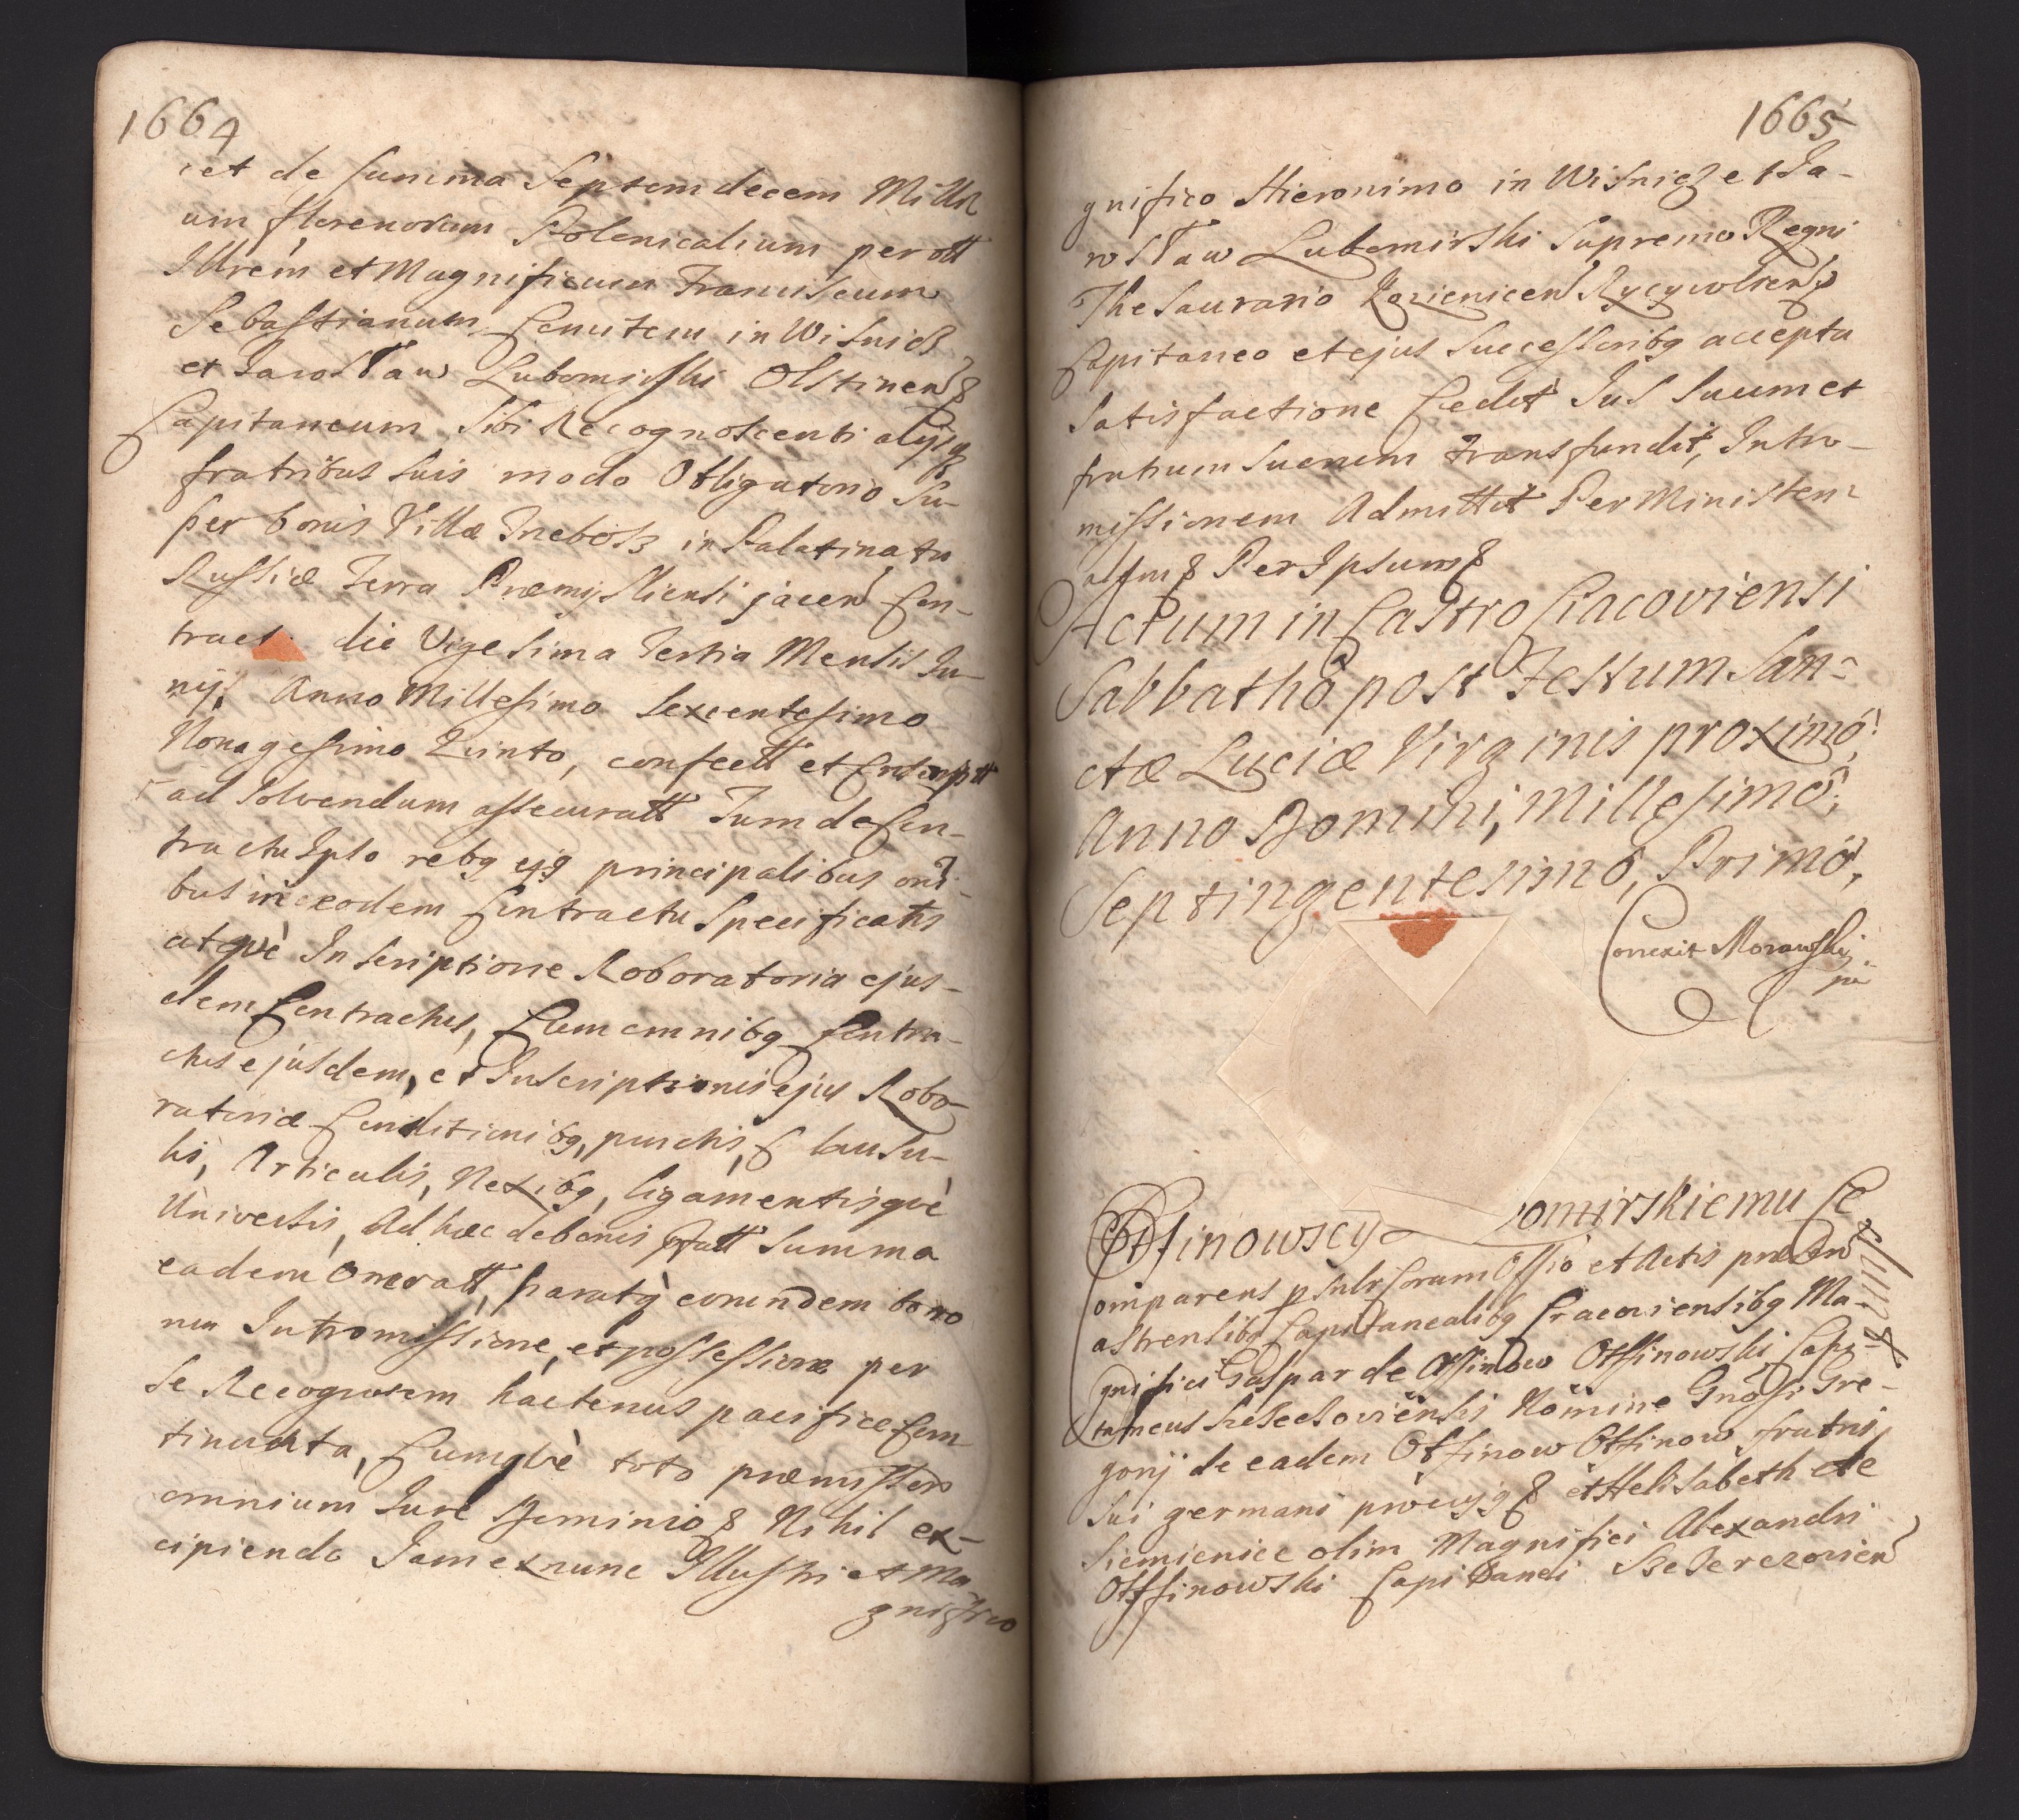 1664
et de summa Septemdecem Milli
um florenorum Polonicalium per olt
Illrem et Magnificum Franciscum
Sebastianum Comitem in Wisnicz
et Jarosław Lubomirski Olstinen &
Capitaneum sibi Recognoscenti alysq
fratribus suis modo Obligatorio Su-
per bonis Villæ Trebosz in Palatinatu
Russiæ Terra Præmysliensi jacen Con-
tract. die Vigesima Tertia Mensis Ju-
nij, Anno Millesimo Sexcentesimo
Nonagesimo Quinto, confectt et
ad solvendum assecuratt Tum de Con-
tractu Ipso rebq ejq principalibus oni-
bus in eodem Contractu Specificatis
atquè Inscriptione Roboratoria ejus-
dem Contractus, Cum omnibq Contra-
ctus ejusdem, et Inscriptionis ejus Robo-
ratoriæ Conditionibq, punctis, Clausu-
lis, Articulis, Nexibq, ligamentisquè
Universis, Ad hæc de bonis pfatt Summa
eadem Oneratt, paratq eorundem bono
rum Intromissione, et possessione per
se Recognoscem hactenus pacifice Con
tinuata, Cumquè toto præmissoro
omnium Jure Dominio & Nihil ex-
cipiendo Jam exnunc Illustri et Ma-
gnifico
1665
gnifico Hieronimo in Wisnicz et Ja-
rosław Lubomirski Supremo Regni
Thesaurario Kozienicen Rycywolsens
Capitaneo et ejus Successoribq accepta
Satisfactione Cedit Jus Suum et
fratrum Suorum transfundit, Intro-
missionem Admittit Per Ministeri-
alem & Per Ipsum &
Actum in Castro Cracoviensi
Sabbatho post Festum San-
ctæ Luciæ Virginis proximo
Anno Domini, Millesimo,
Septingentesimo, Primo,
Correxit Morawski
pi
Otfinowscy omirskiemu Ce
dunt
Comparens psnlr Coram Offio et Actis præsen
Castrensibq Capitanealibq Cracoviensibq Ma-
gnifici Gaspar de Otfinow Otffinowski Capi-
taneus Nomine Gnosi Gre-
gorij de eadem Otfinow Otfinow fratris
sui germani & et Helisabeth de
Siemienice olim Magnifici Alexandri
Otffinowski Capitanei